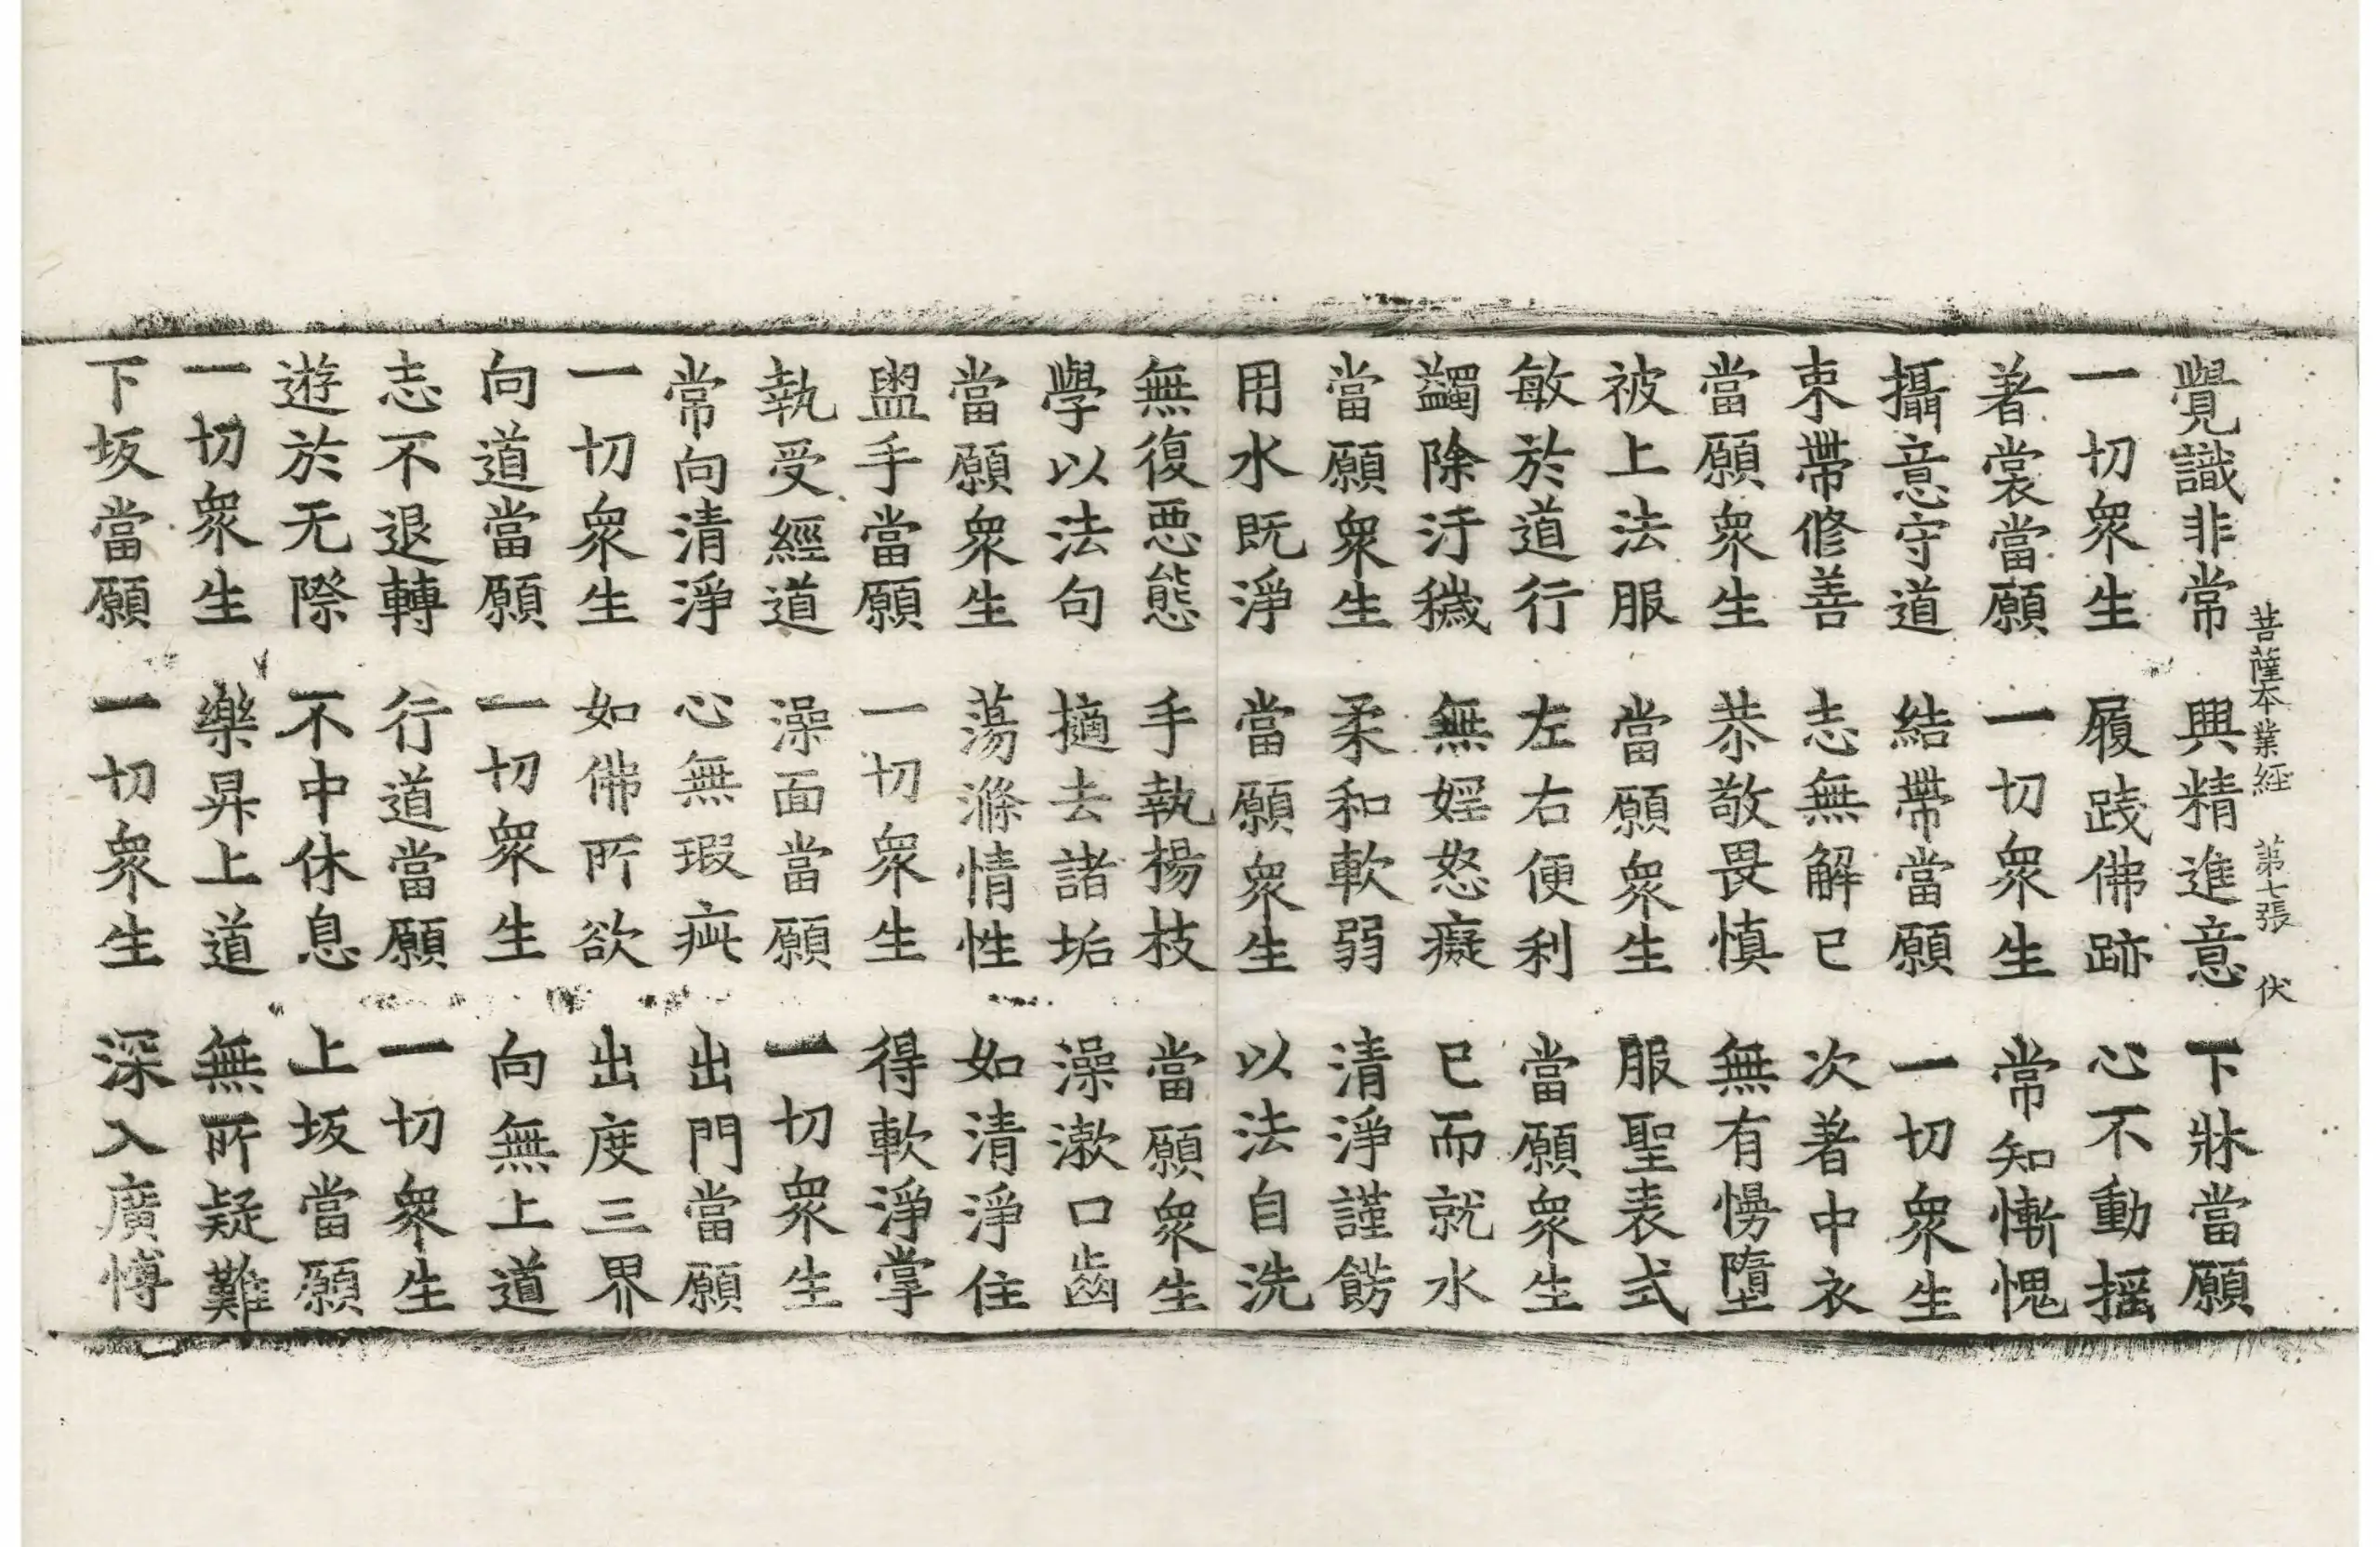 菩薩本業經 第七張 伏
覺識非常 興精進意 下牀當願
一切衆生 履踐佛跡 心不動搖
著裳當願 一切衆生 常知慚愧
攝意守道 結帶當願 一切衆生
束帶修善 志無解已 次著中衣
當願衆生 恭敬畏慎 無有慢墮
被上法服 當願衆生 服聖表式
敏於道行 左右便利 當願衆生
蠲除汙穢 無婬怒癡 已而就水
當願衆生 柔和軟弱 清淨謹飭
用水既淨 當願衆生 以法自洗
無復惡態 手執楊枝 當願衆生
學以法句 擿去諸垢 澡漱口齒
當願衆生 蕩滌情性 如清淨住
盥手當願 一切衆生 得軟淨掌
執受經道 澡面當願 一切衆生
常向清淨 心無瑕疵 出門當願
一切衆生 如佛所欲 出度三界
向道當願 一切衆生 向無上道
志不退轉 行道當願 一切衆生
遊於无際 不中休息 上坂當願
一切衆生 樂昇上道 無所疑難
下坂當願 一切衆生 深入廣博